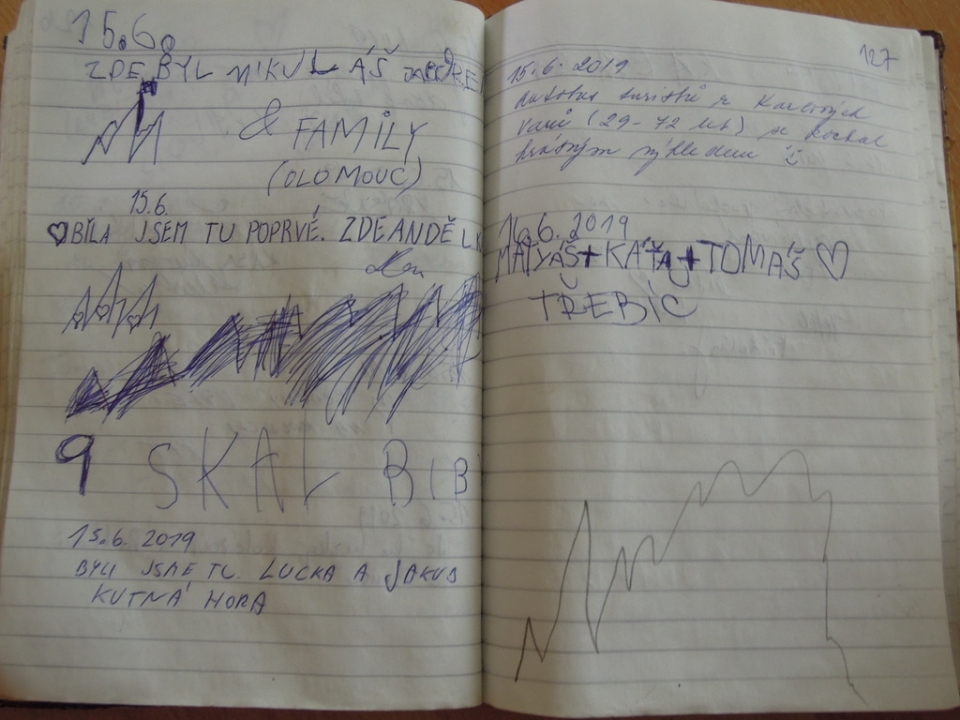 15.6.
ZDE BYL MIKULÁŠ
& FAMILY
(OLOMOUC)
15.6.
BÍLA JSEM TU POPRVÉ. ZDE ANDĚL
9 SKAL BIB
15.6. 2019
BYLI JSME TU. LUCKA A JAKUB
KUTNÁ HORA
127
15.6. 2019
Autobus turistů z Karlových
Varů (29-72 let) se kochal
krásným výhledem
16.6. 2019
MATYÁŠ + KÁŤA + TOMÁŠ
TŘEBÍČ